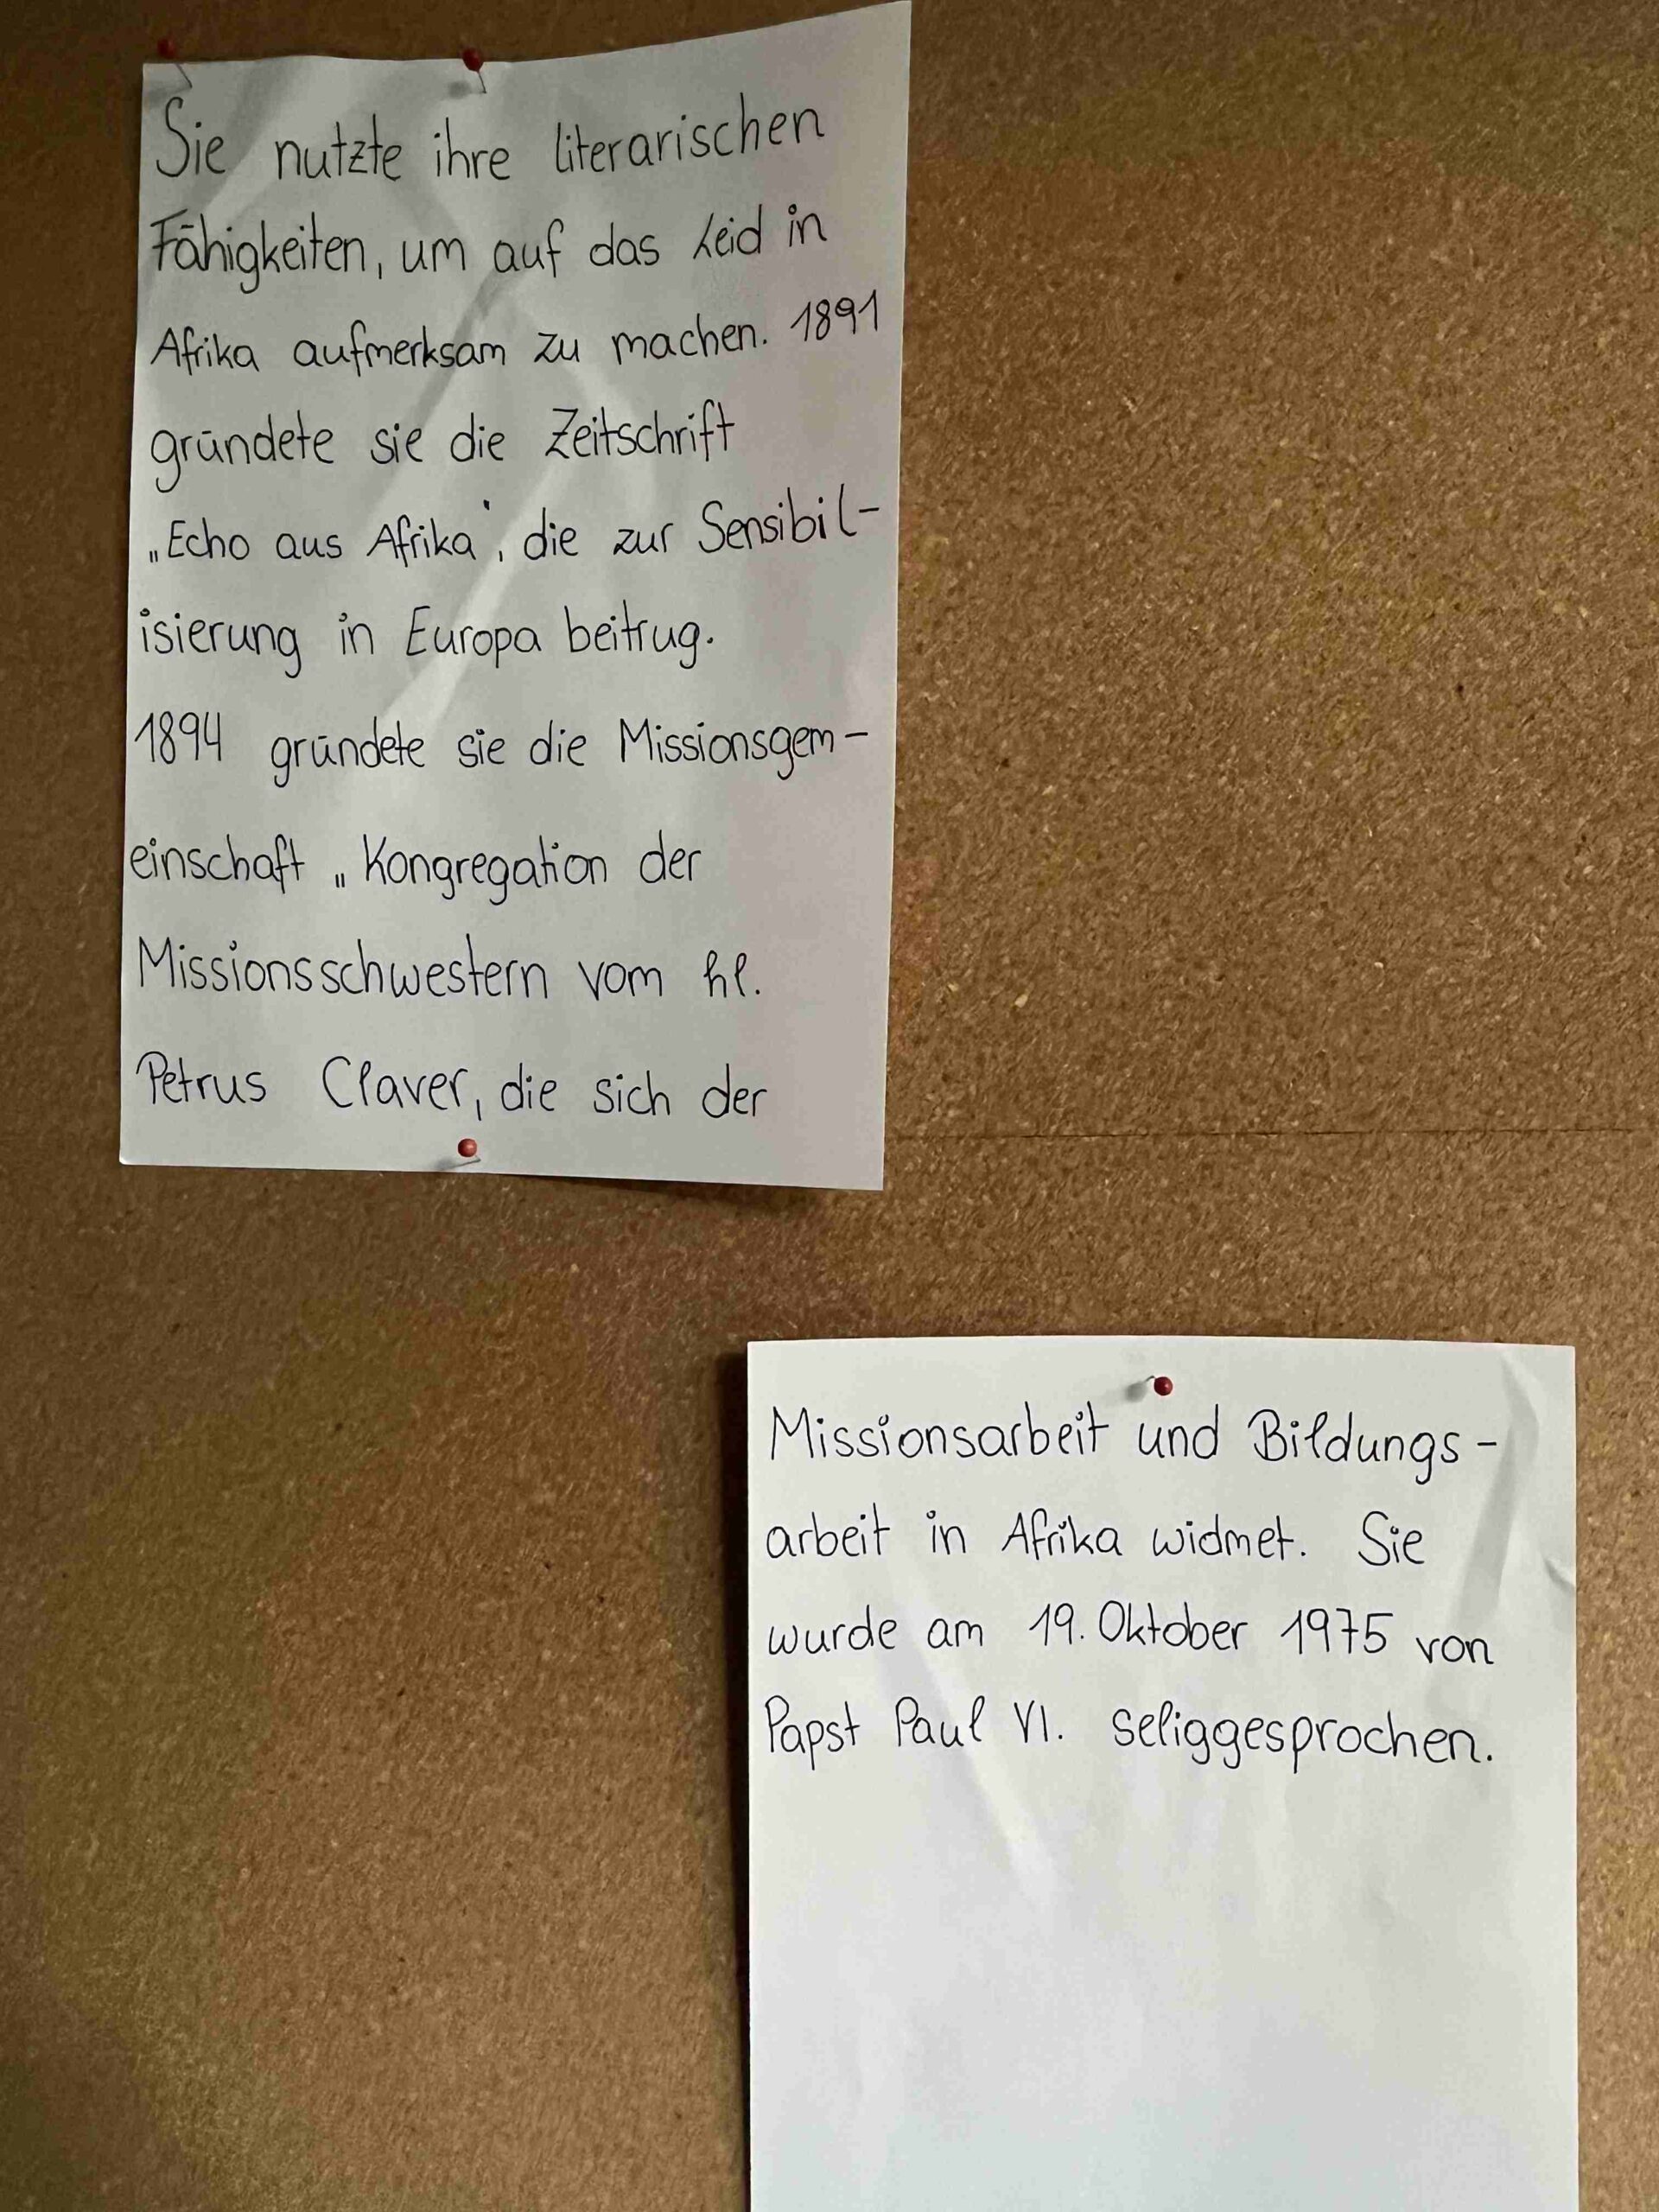 Sie nutzte ihre literarischen
Fähigkeiten, um auf das Leid in
Afrika aufmerksam zu machen. 1891
gründete sie die Zeitschrift
„Echo aus Afrika", die zur Sensibil-
isierung in Europa beitrug.
1894 gründete sie die Missionsgem-
einschaft „Kongregation der
Missionsschwestern vom hl.
Petrus Claver, die sich der
Missionsarbeit und Bildungs-
arbeit in Afrika widmet. Sie
wurde am 19. Oktober 1975 von
Papst Paul VI. seliggesprochen.